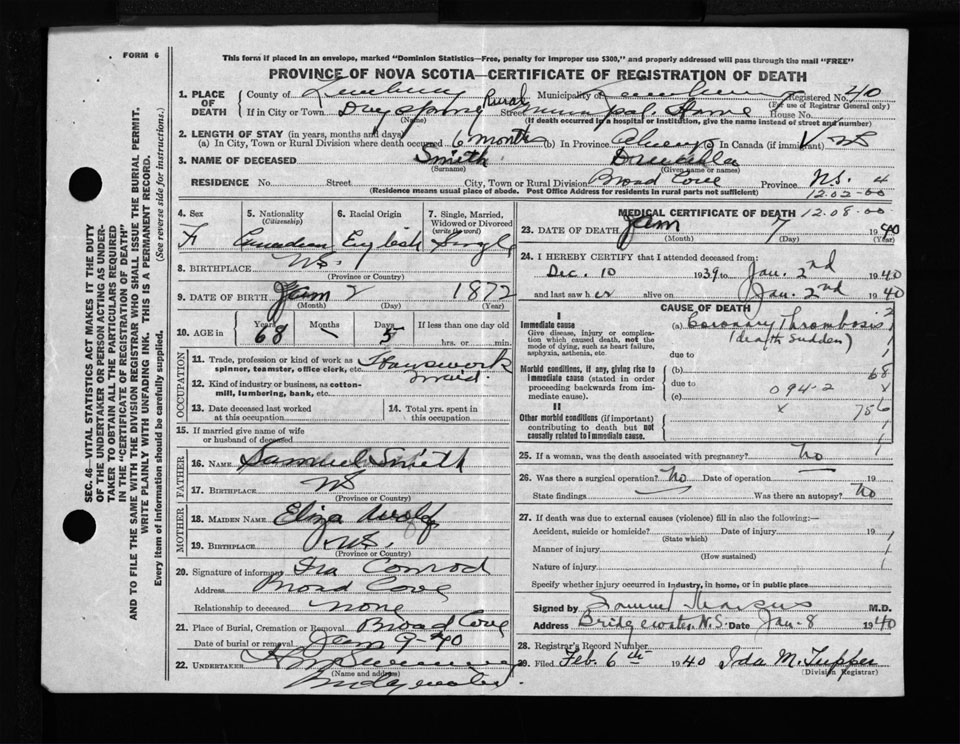 FORM 6
This form if placed in an envelope, marked "Dominion Statistics—Free, penalty for improper use $300," and properly addressed will pass through the mail "FREE"
PROVINCE OF NOVA SCOTIA—CERTIFICATE OF REGISTRATION OF DEATH
1. PLACE OF DEATH
County of Lunenburg Municipality of Lunenburg Registered No. 40
(For use of Registrar General only)
If in City or Town Rural Street Municipal Home House No.
(Name) (If death occurred in a hospital or institution, give the name instead of street and number)
2. LENGTH OF STAY (in years, months and days)
(a) In City, Town or Rural Division where death occurred 6 months (b) In Province always (c) In Canada (if immigrant)
3. NAME OF DECEASED Smith Drusilla
(Surname) (Given name or names)
RESIDENCE No. Street City, Town or Rural Division Broad Cove Province N.S. 4
(Residence means usual place of abode. Post Office Address for residents in rural parts not sufficient) 12.02-00
4. Sex F
5. Nationality (Citizenship) Canadian
6. Racial Origin English
7. Single, Married, Widowed or Divorced (write the word) Single
8. BIRTHPLACE N.S.
(Province or Country)
9. DATE OF BIRTH Jan 2 1872
(Month) (Day) (Year)
10. AGE in Years 68 Months \ Days 5 If less than one day old hrs. or min.
OCCUPATION
11. Trade, profession or kind of work as spinner, teamster, office clerk, etc. Housework maid.
12. Kind of industry or business, as cotton-mill, lumbering, bank, etc.
13. Date deceased last worked at this occupation
14. Total yrs. spent in this occupation
15. If married give name of wife or husband of deceased
FATHER
16. NAME Samuel Smith
17. BIRTHPLACE NS
(Province or Country)
MOTHER
18. MAIDEN NAME Eliza
19. BIRTHPLACE N.S.
(Province or Country)
20. Signature of informant Ira Conrod
Address Broad Cove
Relationship to deceased none
21. Place of Burial, Cremation or Removal Broad Cove
Date of burial or removal Jan 9-40
22. UNDERTAKER
(Name and address)
Bridgewater.
MEDICAL CERTIFICATE OF DEATH 12.08-00
23. DATE OF DEATH Jan 7 1940
(Month) (Day) (Year)
24. I HEREBY CERTIFY that I attended deceased from:
Dec. 10 1939 to Jan. 2nd 1940
and last saw her alive on Jan. 2nd 1940
CAUSE OF DEATH
I
Immediate cause
Give disease, injury or complication which caused death, not the mode of dying, such as heart failure, asphyxia, asthenia, etc.
(a) Coronary Thrombosis
(death sudden)
due to
Morbid conditions, if any, giving rise to immediate cause (stated in order proceeding backwards from immediate cause).
(b) 68
due to 094-2 x
(c) x 756
II
Other morbid conditions (if important) contributing to death but not causally related to immediate cause.
25. If a woman, was the death associated with pregnancy? no
26. Was there a surgical operation? No Date of operation 19
State findings Was there an autopsy? No
27. If death was due to external causes (violence) fill in also the following:—
Accident, suicide or homicide? Date of injury 19
(State which)
Manner of injury
(How sustained)
Nature of injury
Specify whether injury occurred in industry, in home, or in public place
Signed by Samuel Marcus M.D.
Address Bridgewater N.S. Date Jan-8 1940
28. Registrar's Record Number
29. Filed Feb. 6th 1940 Ida M. Tupper
(Division Registrar)
SEC. 46—VITAL STATISTICS ACT MAKES IT THE DUTY
OF THE UNDERTAKER OR PERSON ACTING AS UNDER-
TAKER TO OBTAIN ALL THE PARTICULARS REQUIRED
IN THE "CERTIFICATE OF REGISTRATION OF DEATH"
AND TO FILE THE SAME WITH THE DIVISION REGISTRAR WHO SHALL ISSUE THE BURIAL PERMIT.
WRITE PLAINLY WITH UNFADING INK. THIS IS A PERMANENT RECORD.
Every item of information should be carefully supplied. (See reverse side for instructions.)